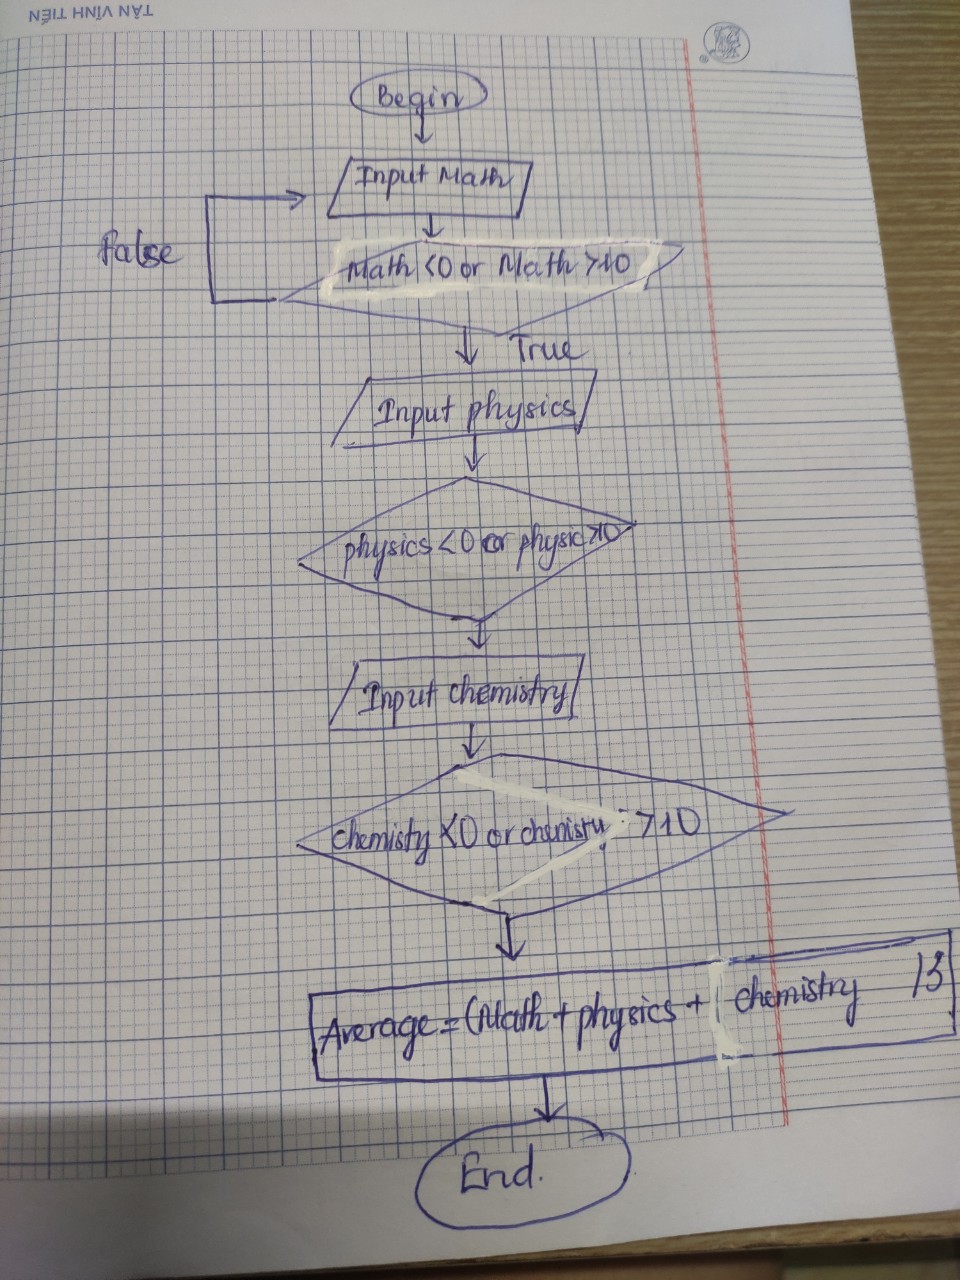 TÂN VĨNH TIẾN
Begin
Input Math
false
Math <0 or Math >10
True
Input physics
physics <0 or physic >10
Input chemistry
chemisty <0 or chemistry >10
Average = (Math + physics + chemistry /3
End.